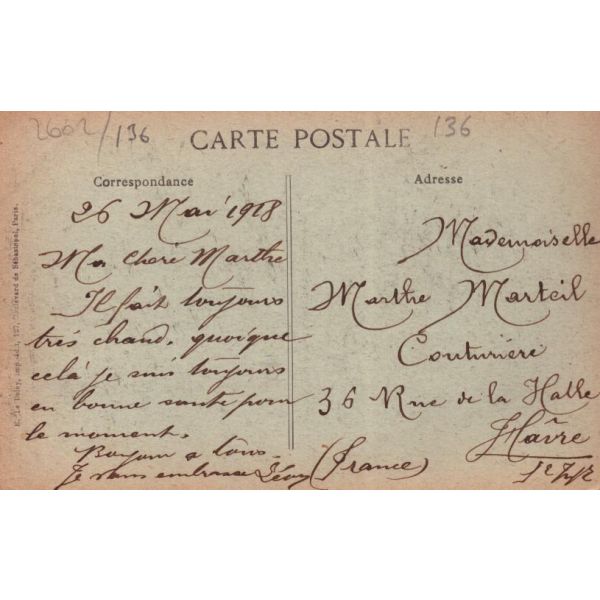 2602/136
136
CARTE POSTALE
Correspondance
26 Mai 1918
Ma Chere Marthe
Il fait toujours
très chaud, quoique
celà je suis toujours
en bonne santé pour
le moment.
Bonjour a tous.
Je vous embrasse Léon
Adresse
Mademoiselle
Marthe Marteil
Couturière
36 Rue de la Halle
Hâvre
(France)
E. Le Deley, imp.-édit., 127, Boulevard de Sébastopol, Paris.